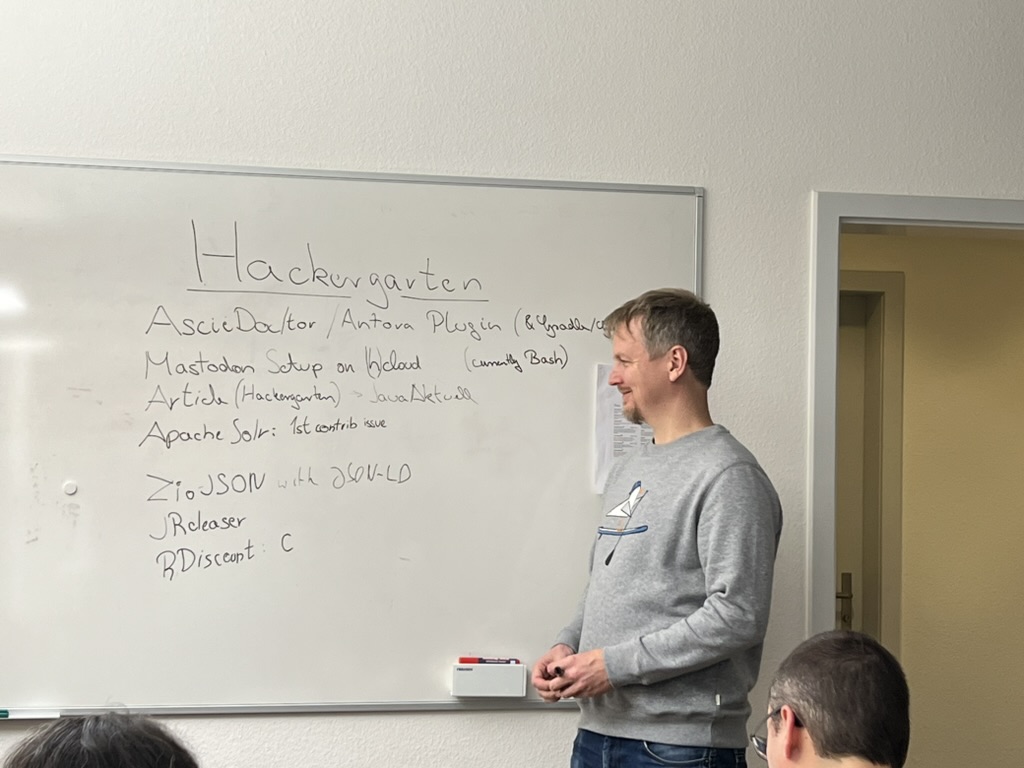 Hackergarten
AsciiDoctor / Antora Plugin (& Gradle/
Mastodon Setup on (h)cloud (currently Bash)
Article (Hackergarten) > JavaAktuell
Apache Solr: 1st contrib issue
ZioJSON with JSON-LD
JReleaser
RDiscount: C